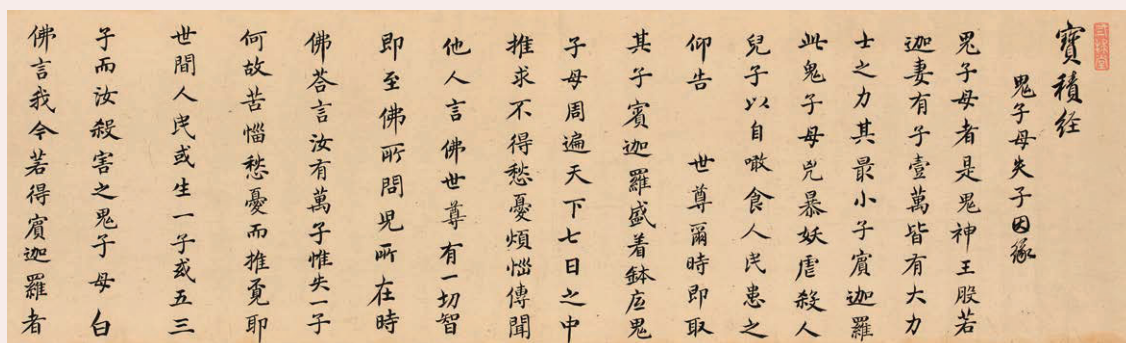 寶積经
鬼子母失子因緣
鬼子母者是鬼神王股若
迦妻有子壹萬皆有大力
士之力其最小子賓迦羅
此鬼子母兇暴妖虐殺人
兒子以自噉食人民患之
仰告　世尊爾時即取
其子賓迦羅盛着鉢底鬼
子母周遍天下七日之中
推求不得愁憂煩惱傳聞
他人言佛世尊有一切智
即至佛所問兒所在時
佛荅言汝有萬子惟失一子
何故苦惱愁憂而推覔耶
世間人民或生一子或五三
子而汝殺害之鬼子母白
佛言我今若得賓迦羅者